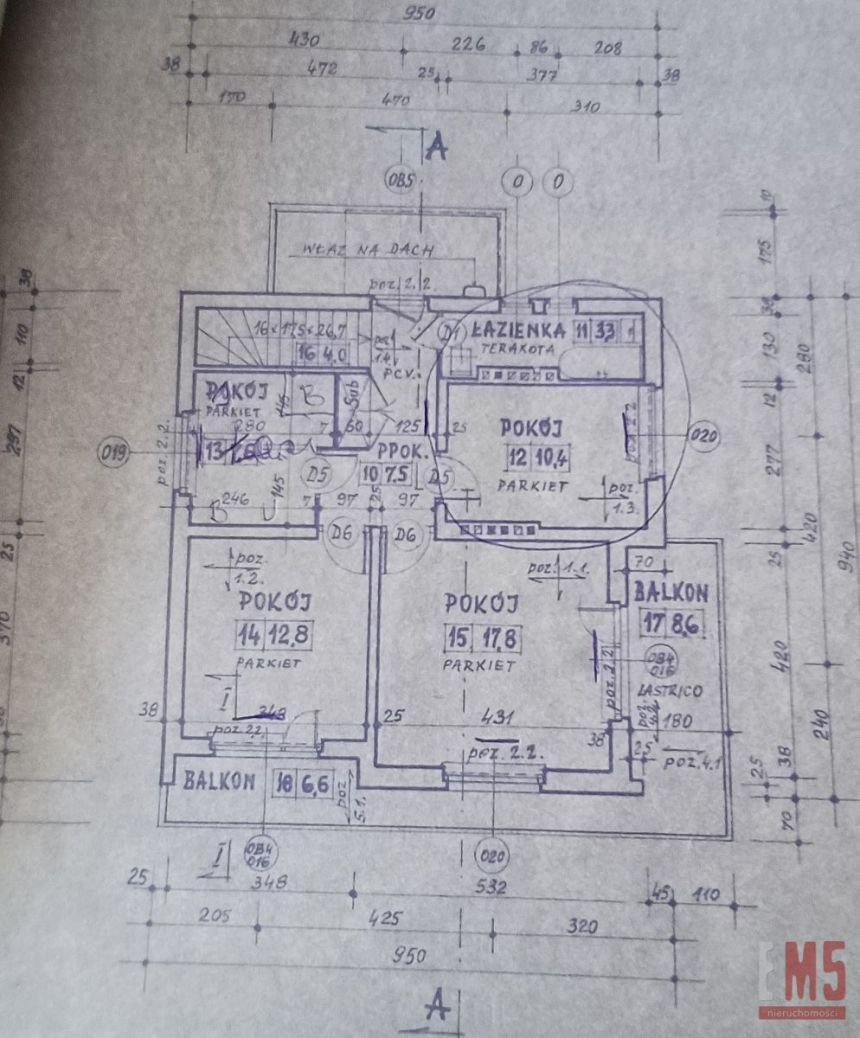 950
430 226 86 208
38 472 25 377 38
170 470 310
A
0B5 0 0
WŁAZ NA DACH
poz. 2.2.
16x17,5x26,7
D1 ŁAZIENKA 11 3,3
TERAKOTA
16 4,0
P.C.V.
POKÓJ
PARKIET
145
B
280
7 60 125 25
13
PPOK.
10 7,5
D5 D5
POKÓJ
12 10,4
PARKIET
poz. 2.2.
019
020
poz.
1.3.
246 145 7 97 25 97
D6 D6
poz.
1.2.
POKÓJ
14 12,8
PARKIET
poz. 1.1.
POKÓJ
15 17,8
PARKIET
70
BALKON
17 8,6
0B4
016
poz. 2.2
LASTRICO
180
I
38 348 25 431 38
poz. 2.2.
poz. 2.2.
25
poz. 4.1
BALKON 18 6,6
poz
5.1.
I
0B4
016
020
25 348 532 45 110
205 425 320
950
A
38
110
12
297
25
370
10
175
38
130
12
277
25
420
38
25
70
280
420
240
940
EM5
nieruchomości